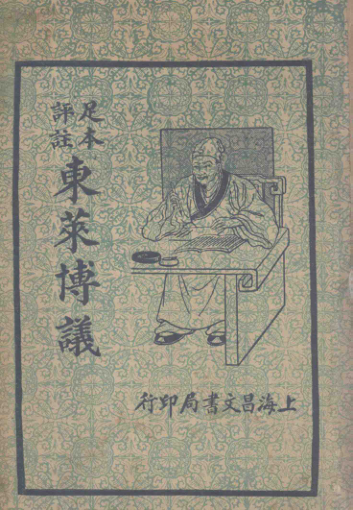 足本
評註
東萊博議
上海昌文書局印行